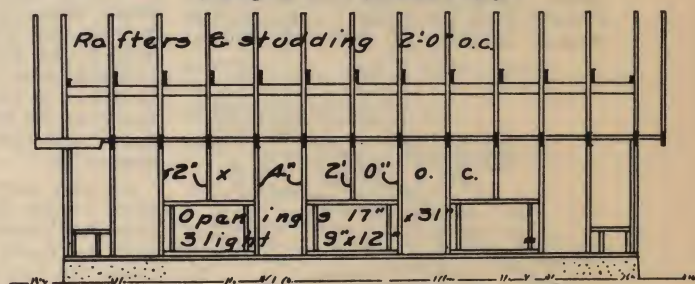 Rafters & studding 2'0" o.c.
2" x 4" 2' 0" o. c.
Openings 17" x 31"
3 light 9"x12"